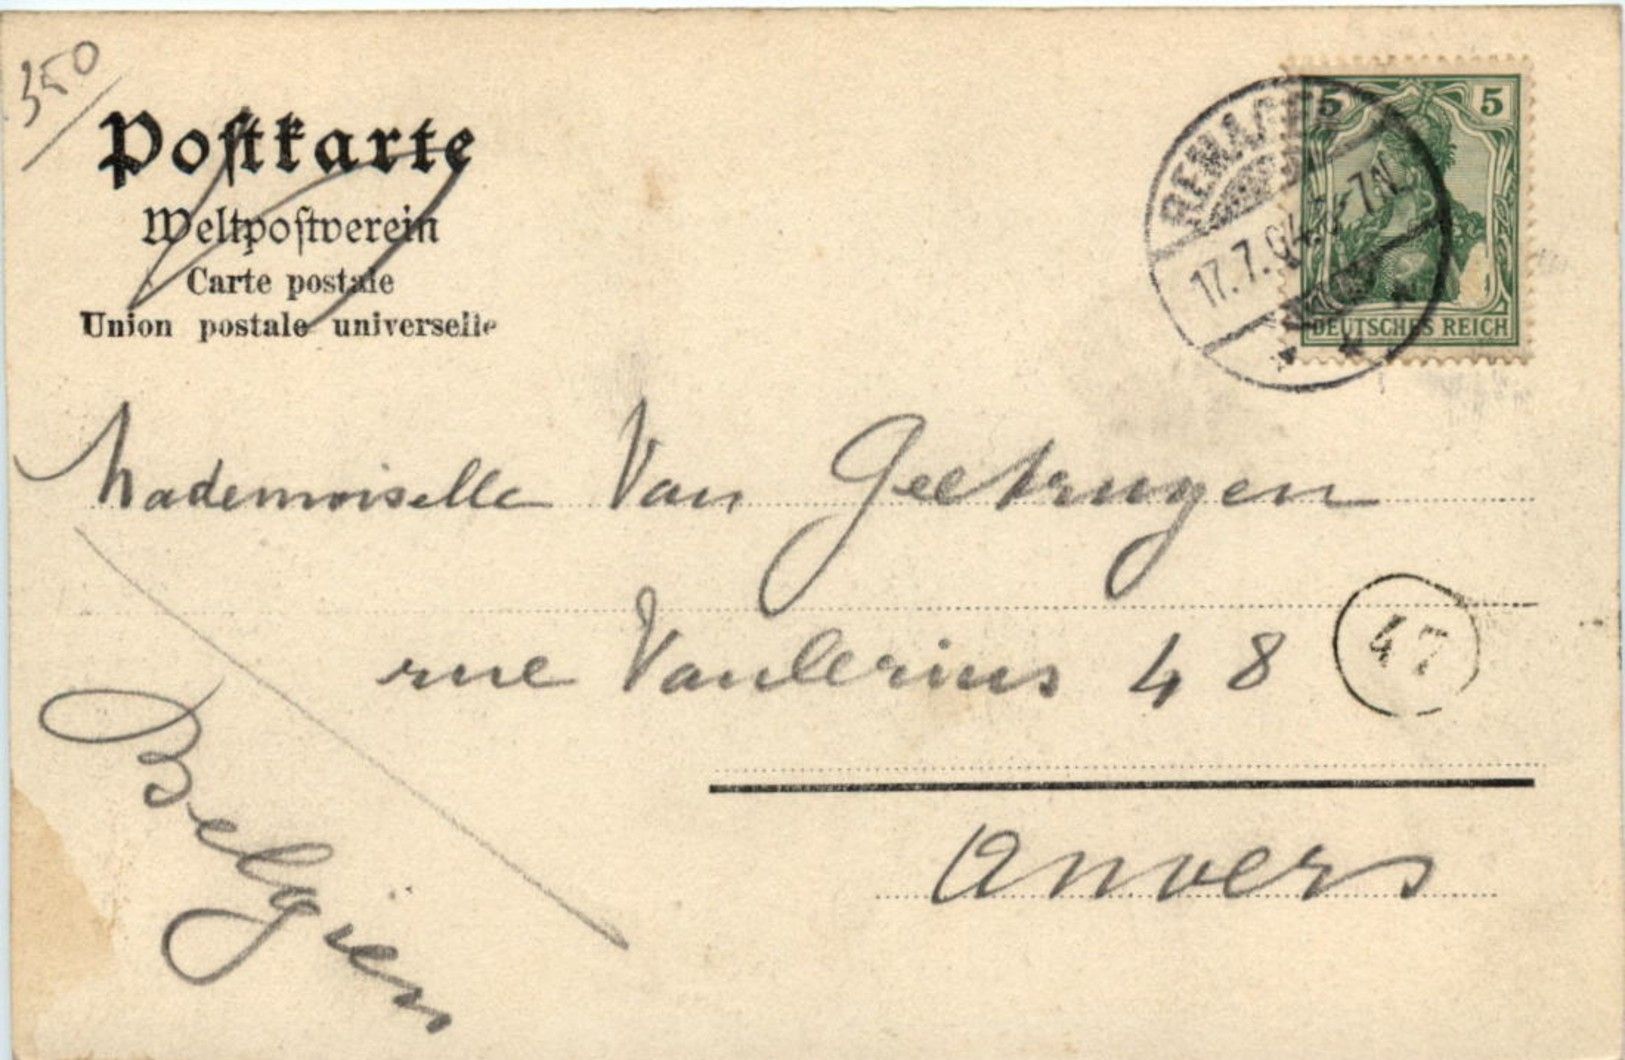 350
Postkarte
Weltpostverein
Carte postale
Union postale universelle
5 5
17.7.04. 6-7N.
DEUTSCHES REICH
Mademoiselle Van Geetruyen
rue Van Lerius 48
47
Anvers
Belgien